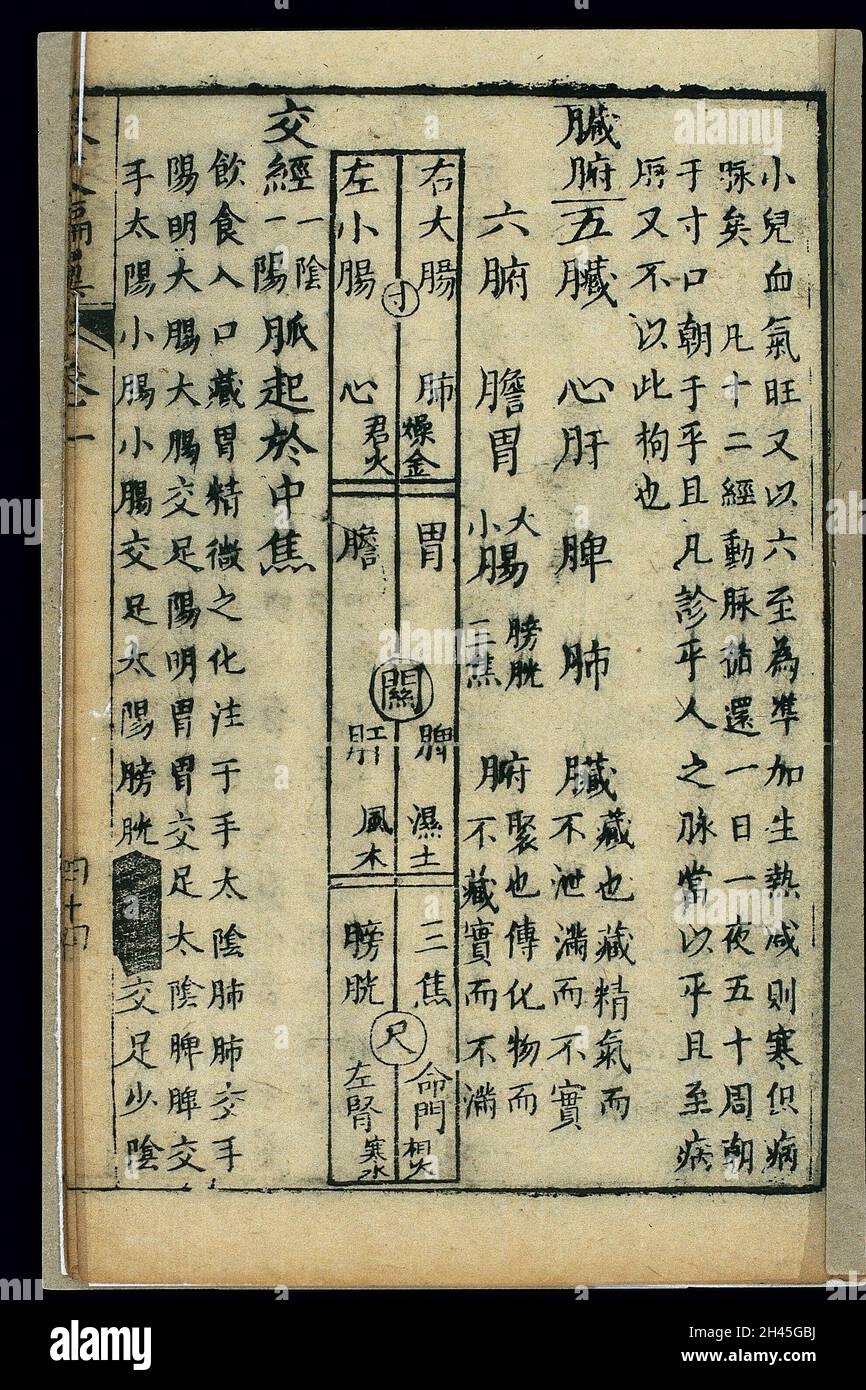 小兒血氣旺又以六至為準加生熱減則寒但病
脉矣 凡十二經動脉循還一日一夜五十周朝
于寸口朝于平旦凡診平人之脉當以平旦至病
又不以此拘也
臟腑
五臟 心肝 脾 肺 臟藏也藏精氣而
不泄滿而不實
六腑 膽胃 大小腸 膀胱三焦 腑聚也傳化物而
不藏實而不滿
右大腸 肺 燥金
胃 脾 濕土
三焦 命門 相火
寸
關
尺
左小腸 心 君火
膽 肝 風木
膀胱 左腎 寒水
交經一陰一陽脈起於中焦
飲食入口藏胃精微之化注于手太陰肺肺交手
陽明大腸大腸交足陽明胃胃交足太陰脾脾交
手太陽小腸小腸交足太陽膀胱
交足少陰
四十四
alamy
Image ID: 2H45GBJ
www.alamy.com